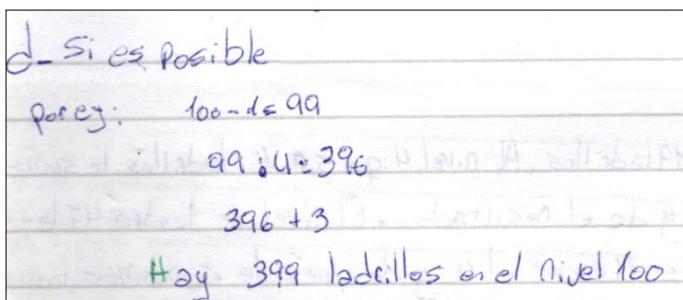 d- Si es posible
por ej: 100-1= 99
99 . 4 = 396
396 + 3
Hay 399 ladrillos en el nivel 100